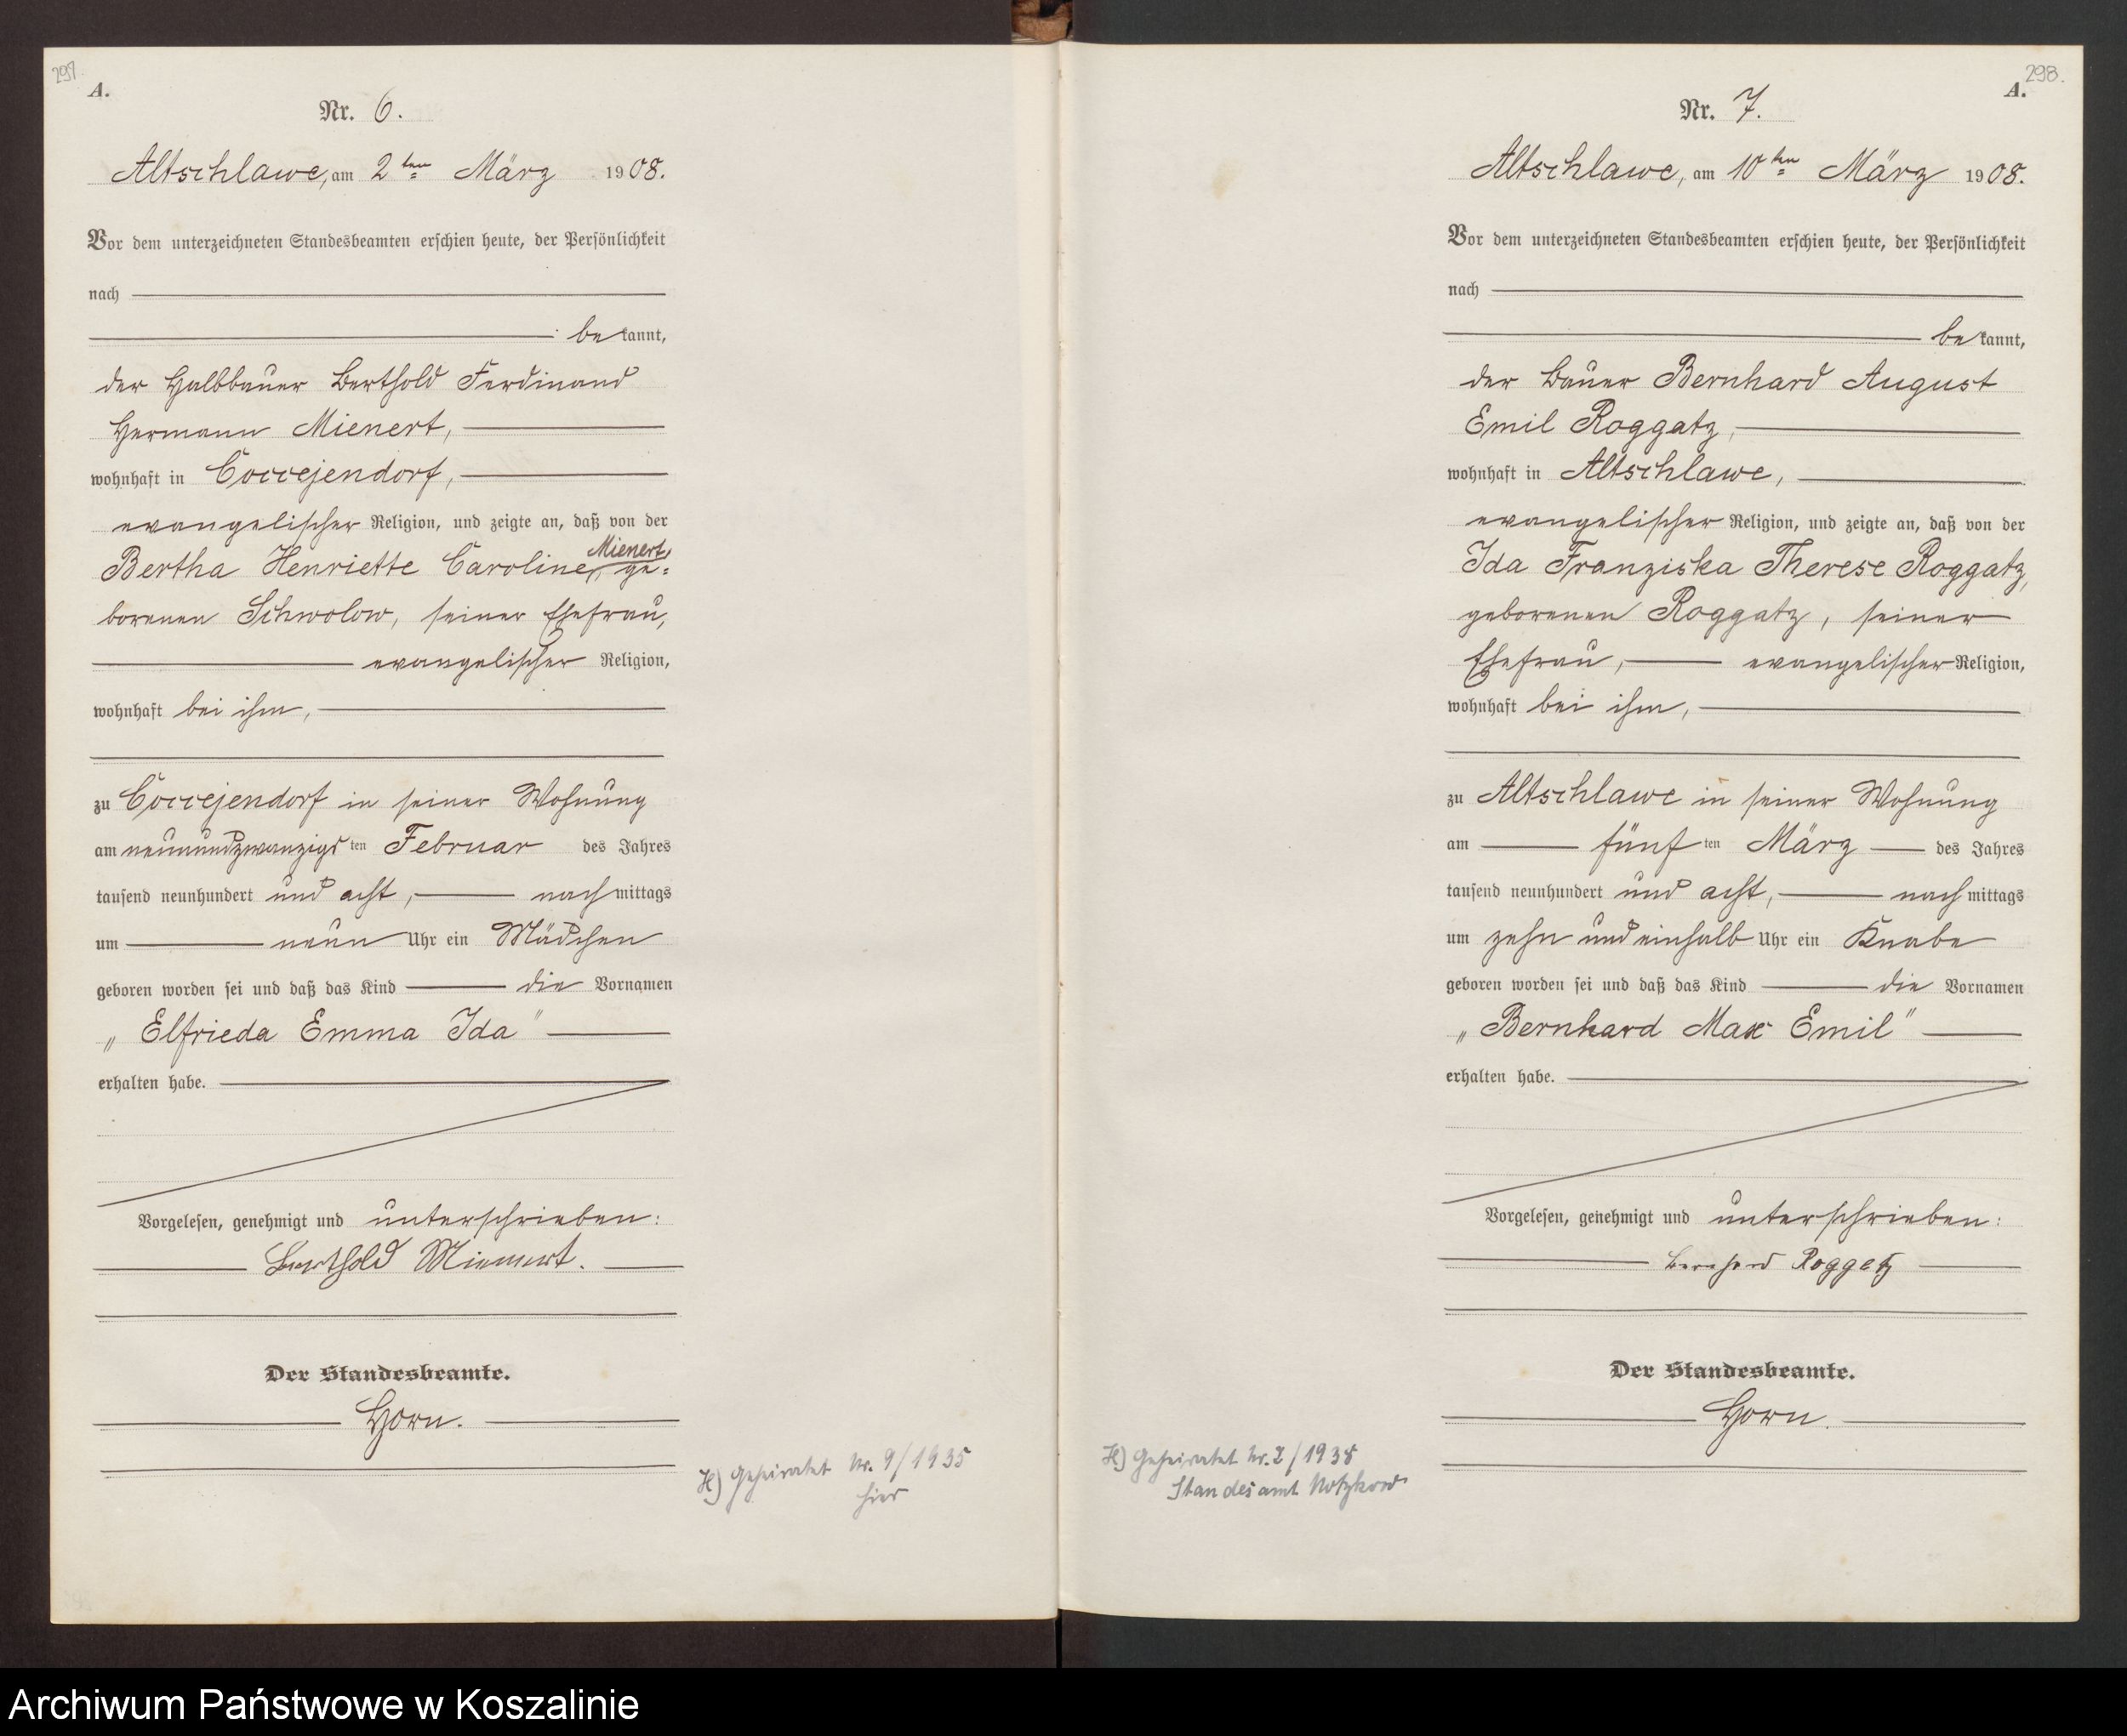 297.
A.
Nr. 6.
Altschlawe, am 2ten März 1908.
Vor dem unterzeichneten Standesbeamten erschien heute, der Persönlichkeit
nach
bekannt,
der Halbbauer Berthold Ferdinand
Hermann Mienert,
wohnhaft in Coccejendorf,
evangelischer Religion, und zeigte an, daß von der
Mienert,
Bertha Henriette Caroline, ge=
borenen Schwolow, seiner Ehefrau,
evangelischer Religion,
wohnhaft bei ihm,
zu Coccejendorf in seiner Wohnung
am neunundzwanzigsten Februar des Jahres
tausend neunhundert und acht, nachmittags
um neun Uhr ein Mädchen
geboren worden sei und daß das Kind die Vornamen
„Elfrieda Emma Ida"
erhalten habe.
Vorgelesen, genehmigt und unterschrieben:
Berthold Mienert.
Der Standesbeamte.
Horn.
H) Geheiratet Nr. 9/1935
hier
298.
A.
Nr. 7.
Altschlawe, am 10ten März 1908.
Vor dem unterzeichneten Standesbeamten erschien heute, der Persönlichkeit
nach
bekannt,
der Bauer Bernhard August
Emil Roggatz,
wohnhaft in Altschlawe,
evangelischer Religion, und zeigte an, daß von der
Ida Franziska Therese Roggatz,
geborenen Roggatz, seiner
Ehefrau, evangelischer Religion,
wohnhaft bei ihm,
zu Altschlawe in seiner Wohnung
am fünften März des Jahres
tausend neunhundert und acht, nachmittags
um zehn und einhalb Uhr ein Knabe
geboren worden sei und daß das Kind die Vornamen
„Bernhard Max Emil"
erhalten habe.
Vorgelesen, genehmigt und unterschrieben:
Bernhard Roggatz
Der Standesbeamte.
Horn.
H) Geheiratet Nr. 2/1938
Standesamt Notzkow
Archiwum Państwowe w Koszalinie